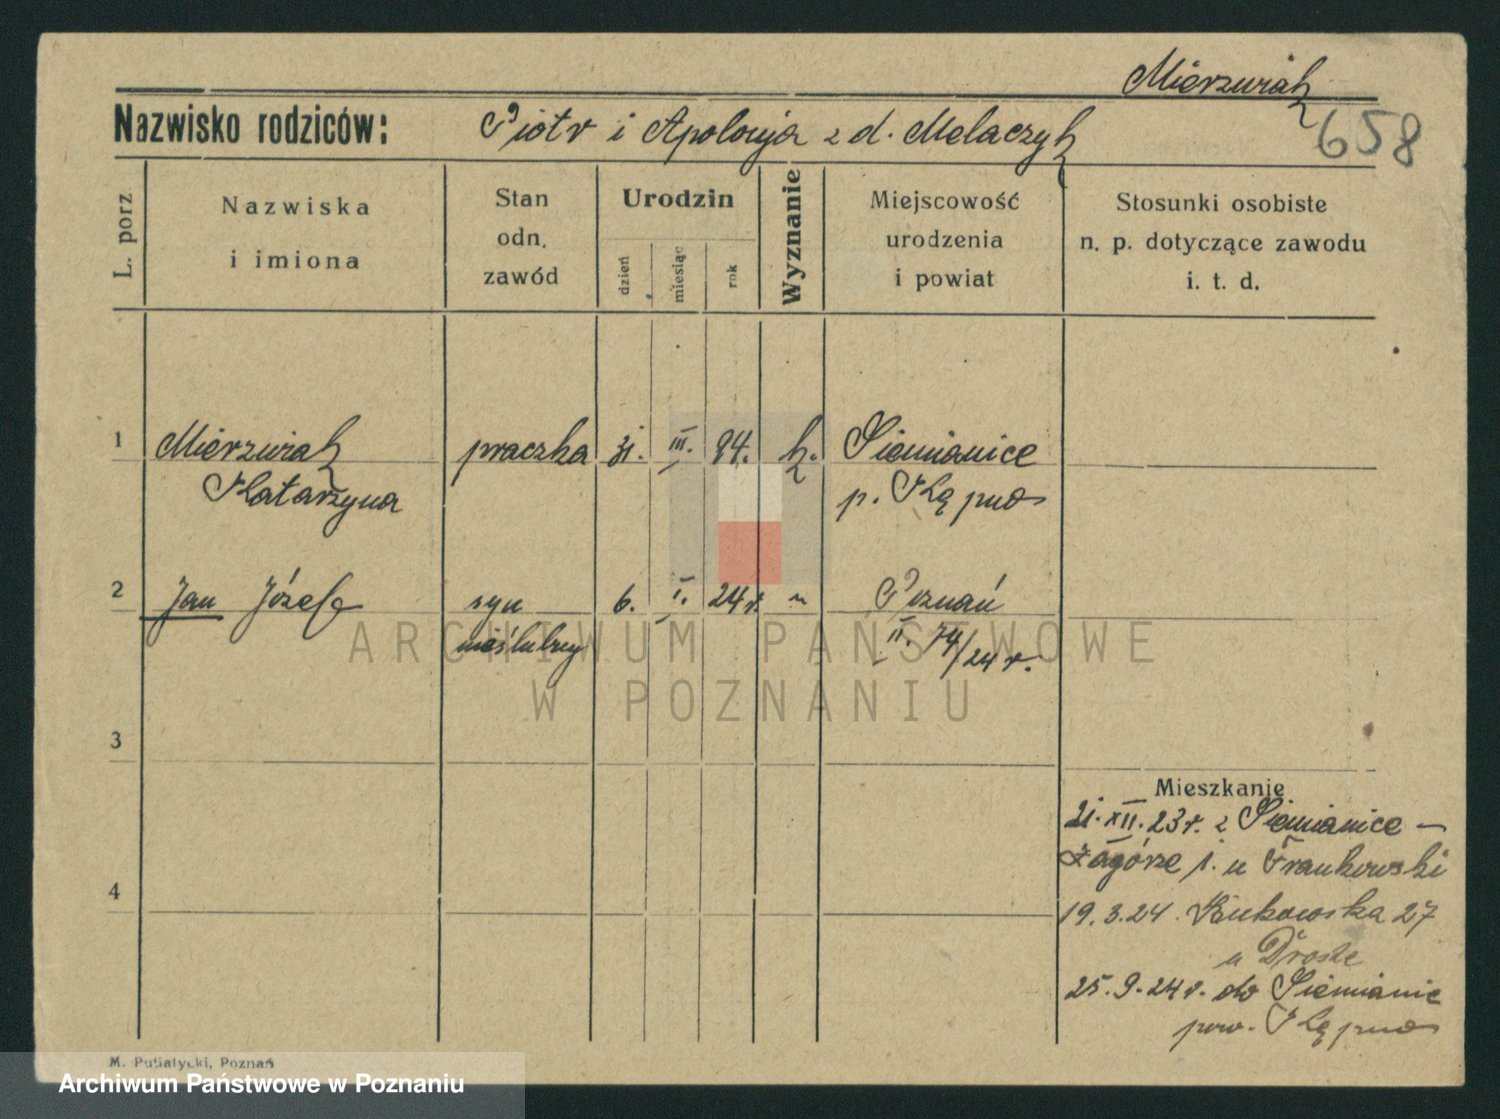 Mierzwiak
Nazwisko rodziców: Piotr i Apolonja z d. Melaczyk
658
L. porz
Nazwiska
i imiona
Stan
odn.
zawód
Urodzin
dzień
miesiąc
rok
Wyznanie
Miejscowość
urodzenia
i powiat
Stosunki osobiste
n. p. dotyczące zawodu
i. t. d.
1 Mierzwiak praczka 31. III. 94. k. Siemianice
Katarzyna p. Kępno
2 Jan Józef syn 6. I. 24 r. " Poznań
nieślubny II. 74/24 r.
ARCHIWUM PAŃSTWOWE
W POZNANIU
3
Mieszkanie
21. XII. 23 r. z Siemianice –
Zagórze 1. u Frankowski
4
19. 3. 24. Bukowska 27
u Droste
25. 9. 24 r. do Siemianic
pow. Kępno
M. Putiatycki, Poznań
Archiwum Państwowe w Poznaniu